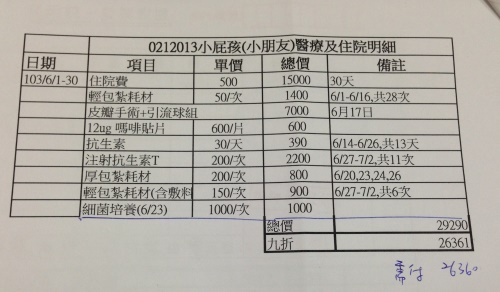 0212013小屁孩(小朋友)醫療及住院明細
日期 項目 單價 總價 備註
103/6/1-30 住院費 500 15000 30天
輕包紮耗材 50/次 1400 6/1-6/16,共28次
皮瓣手術+引流球組 7000 6月17日
12ug 嗎啡貼片 600/片 600
抗生素 30/天 390 6/14-6/26,共13天
注射抗生素T 200/次 2200 6/27-7/2,共11次
厚包紮耗材 200/次 800 6/20,23,24,26
輕包紮耗材(含敷料 150/次 900 6/27-7/2,共6次
細菌培養(6/23) 1000/次 1000
總價 29290
九折 26361
需付 26360